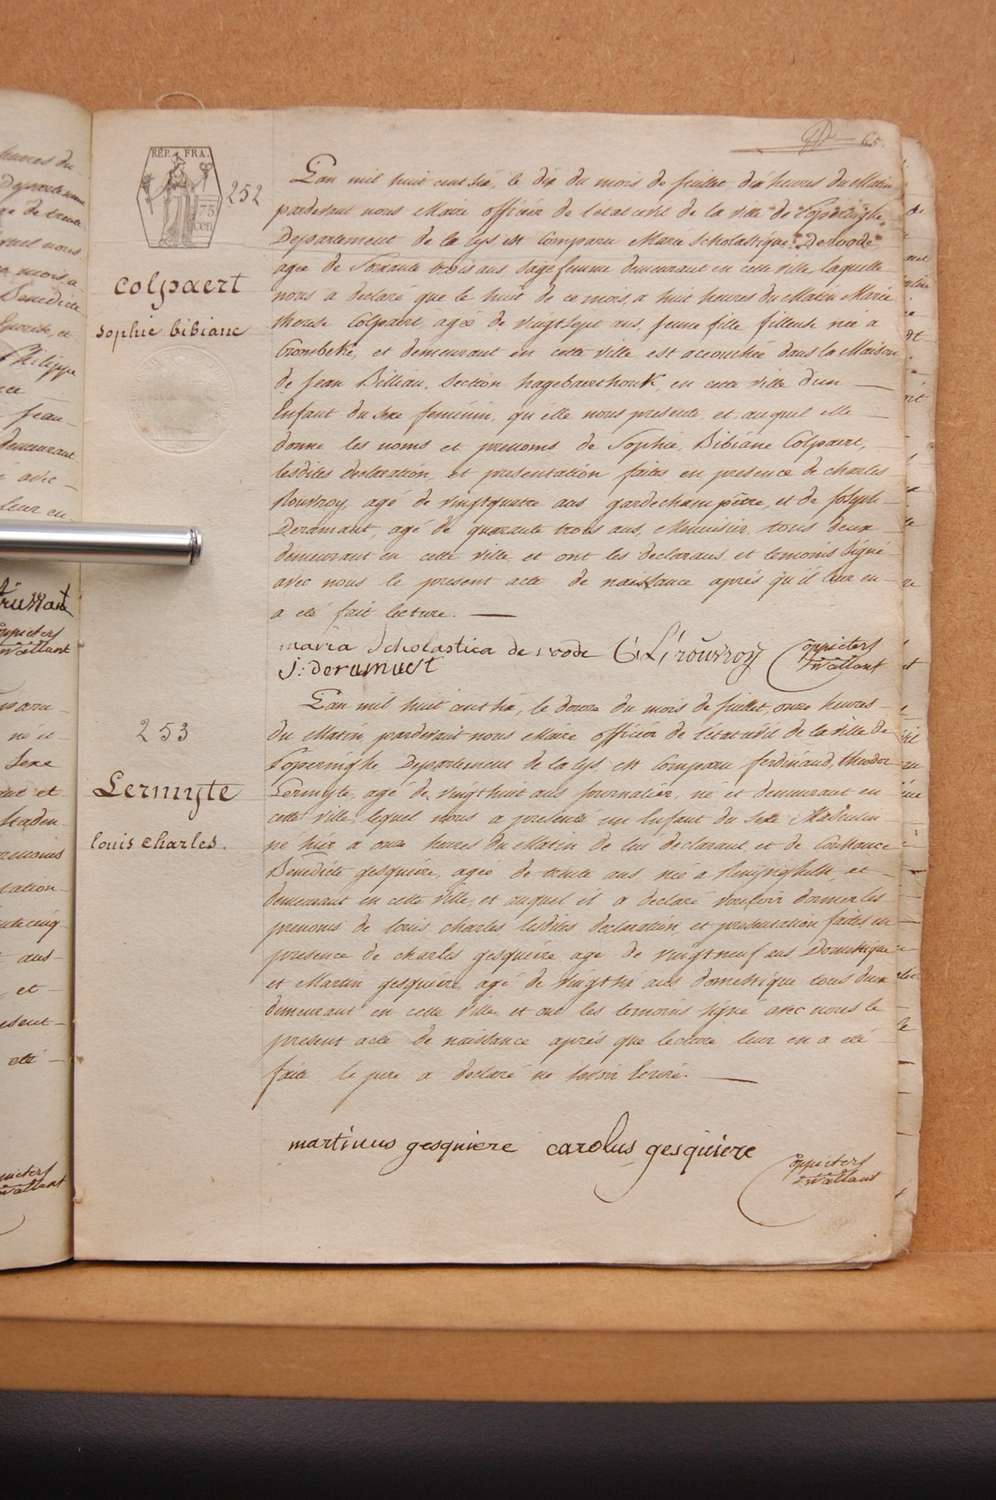 65.
RÉP. FRA.
75
CEN
252
colpaert
sophie bibiane
L'an mil huit cent six, le dix du mois de juillet dix heures du Matin
pardevant nous Maire officier de l'état civil de la ville de Poperinghe
Departement de la Lys est Comparu Marie Scholastique Deroode
agee de Soixante trois ans, sage femme demeurant en cette ville, laquelle
nous a declaré que le huit de ce mois, a huit heures du Matin Marie
therese Colpaert, agée de vingt sept ans, jeune fille fileuse née a
Crombeke, et demeurant en cette ville est accouchée dans la Maison
de Jean Billiau, Section hagebaerthouk, en cette ville d'un
Enfant du sexe feminin, qu'elle nous presente, et auquel elle
donne les noms et prenoms de Sophie, Bibiane Colpaert,
lesdites declaration et presentation faites en presence de charles
Rouvroy, agé de vingt quatre ans gardechampêtre, et de joseph
Deramaut, agé de quarante trois ans, Menuisier, tous deux
demeurant en cette ville et ont les declarans et temoins signé
avec nous le present acte de naissance après qu'il leur en
a été fait lecture.
maria Scholastica de roode C: L: rouvroy
J: deramaut
253
Lermyte
louis charles.
L'an mil huit cent six, le douze du mois de juillet, onze heures
du Matin pardevant nous Maire officier de l'état civil de la ville de
Poperinghe Departement de la Lys est Comparu ferdinand, theodor
Lermyte, agé de vingthuit ans journalier, né et demeurant en
cette ville, lequel nous a presenté un Enfant du sexe Masculin
né hier a onze heures du Matin de lui declarant et de Constance
Benedicte gesquiére, agée de trente ans, née a et
demeurant en cette ville, et auquel il a declaré vouloir donner les
prenoms de louis charles lesdites declaration et presentation faites en
presence de charles gesquiére agé de vingtneuf ans Domestique
et Martin gesquiére agé de vingt six ans domestique tous deux
demeurant en cette ville et ont les temoins signé avec nous le
present acte de naissance après que lecture leur en a été
faite le pere a declaré ne savoir ecrire.
martinus gesquiere carolus gesquiere